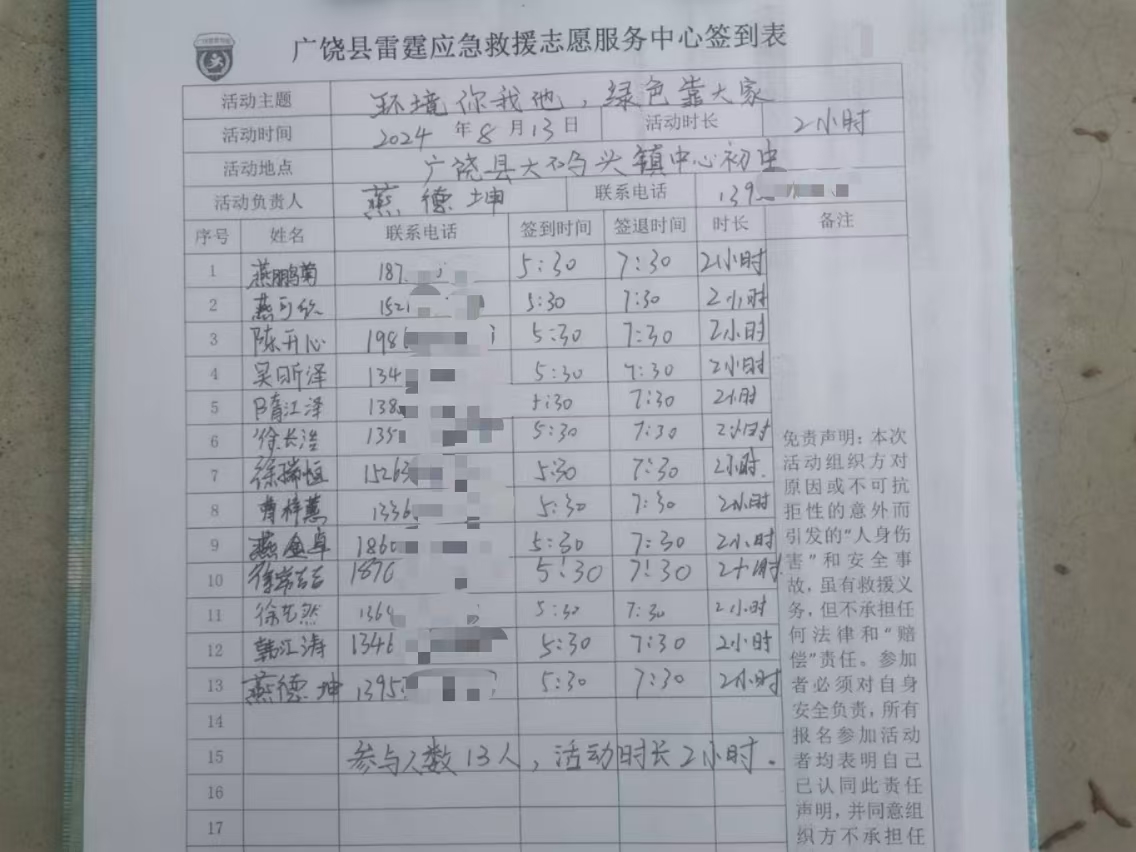 广饶县雷霆应急救援志愿服务中心签到表
活动主题 环境你我他,绿色靠大家
活动时间 2024 年 8 月 13 日 活动时长 2小时
活动地点 广饶县大码头镇中心初中
活动负责人 燕德坤 联系电话 139
序号 姓名 联系电话 签到时间 签退时间 时长 备注
1 燕鹏菊 187 5:30 7:30 2小时
2 燕可欣 152 5:30 7:30 2小时
3 陈开心 198 5:30 7:30 2小时
4 吴昕泽 134 5:30 7:30 2小时
5 隋江泽 138 5:30 7:30 2小时
6 徐长治 135 5:30 7:30 2小时
7 徐瑞恒 15263 5:30 7:30 2小时.
8 曹梓蕙 1336 5:30 7:30 2小时
9 燕 卓 1860 5:30 7:30 2小时
10 徐常喆 1876 5:30 7:30 2小时
11 徐艺然 136 5:30 7:30 2小时
12 韩江涛 1346 5:30 7:30 2小时
13 燕德坤 1395 5:30 7:30 2小时
14
15 参与人数13人,活动时长2小时.
16
17
免责声明:本次
活动组织方对
原因或不可抗
拒性的意外而
引发的"人身伤
害"和安全事
故,虽有救援义
务,但不承担任
何法律和"赔
偿"责任。参加
者必须对自身
安全负责,所有
报名参加活动
者均表明自己
已认同此责任
声明,并同意组
织方不承担任